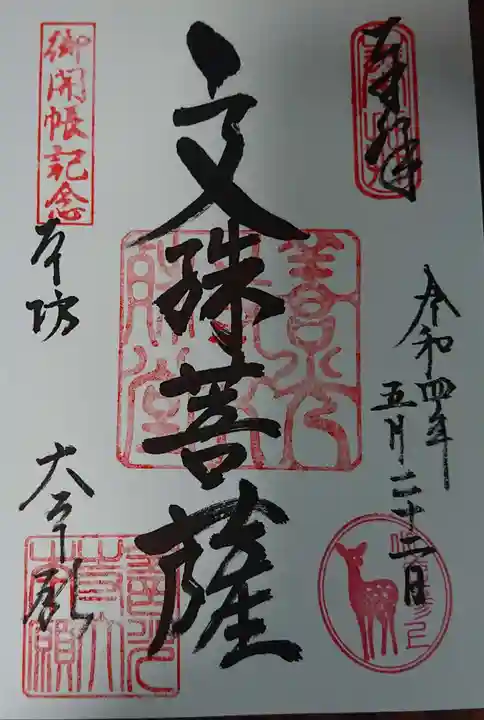 奉拝
令和四年
五月二十二日
文殊菩薩
御開帳記念
本坊
大本願